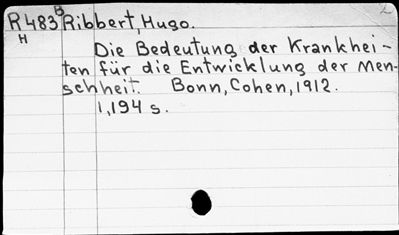 R483 B Ribbert, Hugo. 2
H
Die Bedeutung der Krankhei-
ten für die Entwicklung der Men-
schheit. Bonn, Cohen, 1912.
1,194 s.